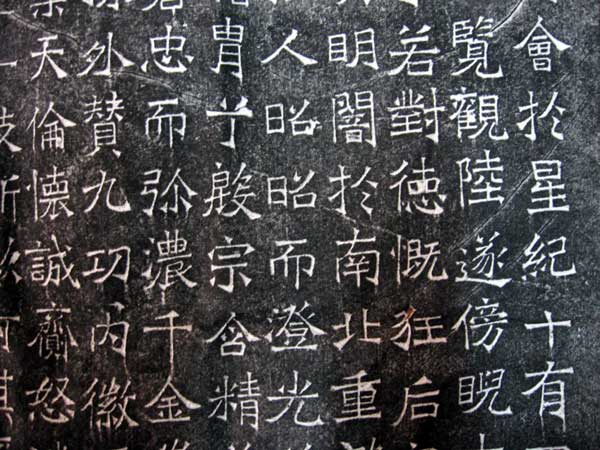 會於星紀十有
覽觀陸遂傍睨
若對德慨狂后
明闇於南北重
人昭昭而澄光
胄于殷宗含精
忠而弥濃千金
外賛九功内徽
天倫懷誠齋怒